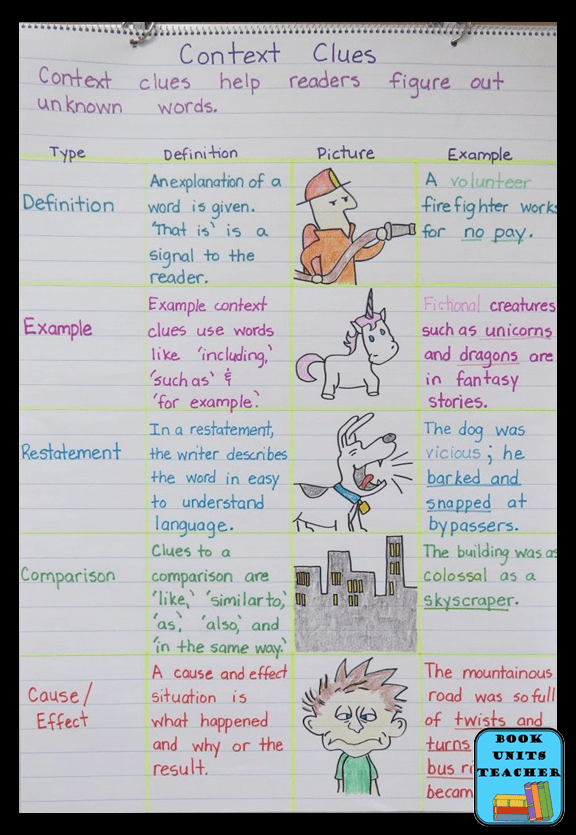 Context Clues
Context clues help readers figure out
unknown words.
Type
Definition
Picture
Example
Definition
An explanation of a
word is given.
'That is' is a
signal to the
reader.
A volunteer
firefighter works
for no pay.
Example
Example context
clues use words
like 'including,'
'such as' &
'for example.'
Fictional creatures
such as unicorns
and dragons are
in fantasy
stories.
Restatement
In a restatement,
the writer describes
the word in easy
to understand
language.
The dog was
vicious; he
barked and
snapped at
bypassers.
Comparison
Clues to a
comparison are
'like,' 'similar to,'
'as', 'also,' and
'in the same way.'
The building was as
colossal as a
skyscraper.
Cause/
Effect
A cause and effect
situation is
what happened
and why or the
result.
The mountainous
road was so full
of twists and
turns
bus
BOOK
UNITS
TEACHER